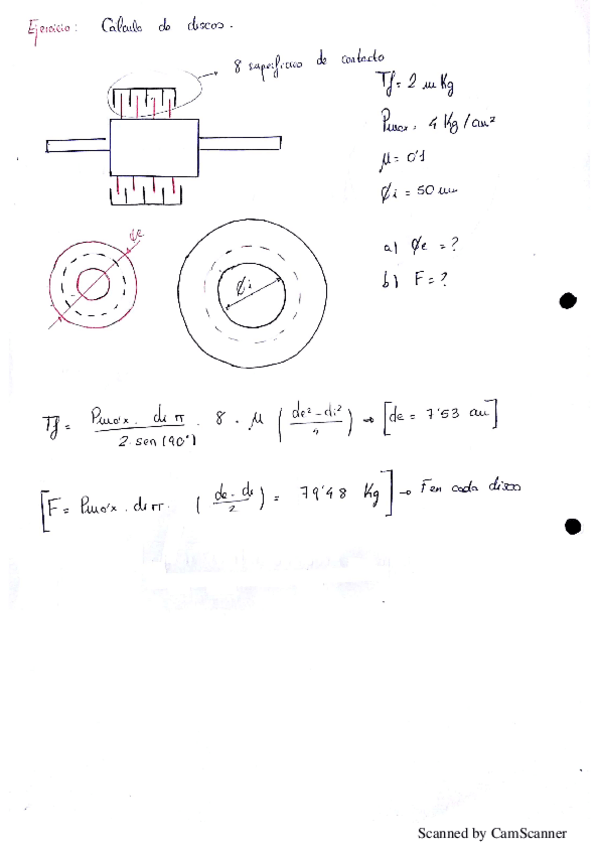 Ejercicio: Calculo de discos.
8 superficies de contacto
Tf = 2 mKg
Pmax = 4 Kg/cm²
μ = 0'1
φi = 50 mm
a) φe = ?
b) F = ?
φe
φi
Tf = Pmáx · di π / 2 · sen (90°) · 8 · μ ( de² - di² / 4 ) → [de = 7'53 cm]
[F = Pmáx · di π · ( de - di / 2 ) = 79'48 Kg] → F en cada disco
Scanned by CamScanner